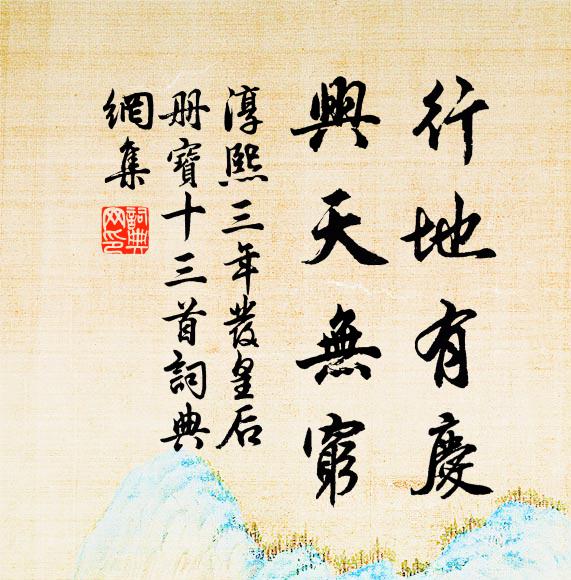 行地有慶
興天無窮
淳熙三年發皇后
册寶十三首詞典
網集
詞典
网印